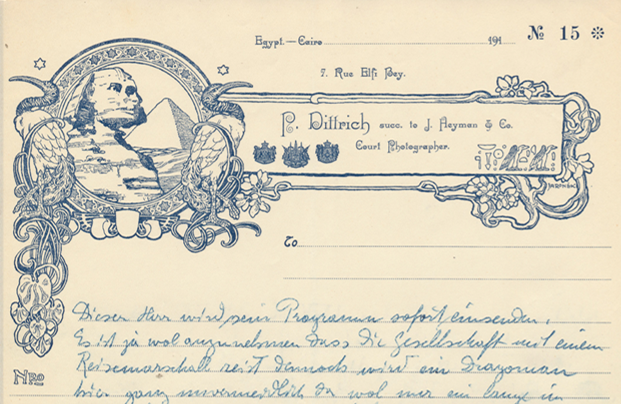 Egypt.—Cairo 191 № 15
7. Rue Elfi Bey.
P. Dittrich succ. to J. Heyman & Co.
Court Photographer.
To
Dieser Herr wird sein Programm sofort einsenden.
Es ist ja wol anzunehmen dass die Gesellschaft mit einem
Reisemarschall reist dennoch wird ein Dragoman
hier ganz unvermeidlich da wol nur ein lange im
Nro